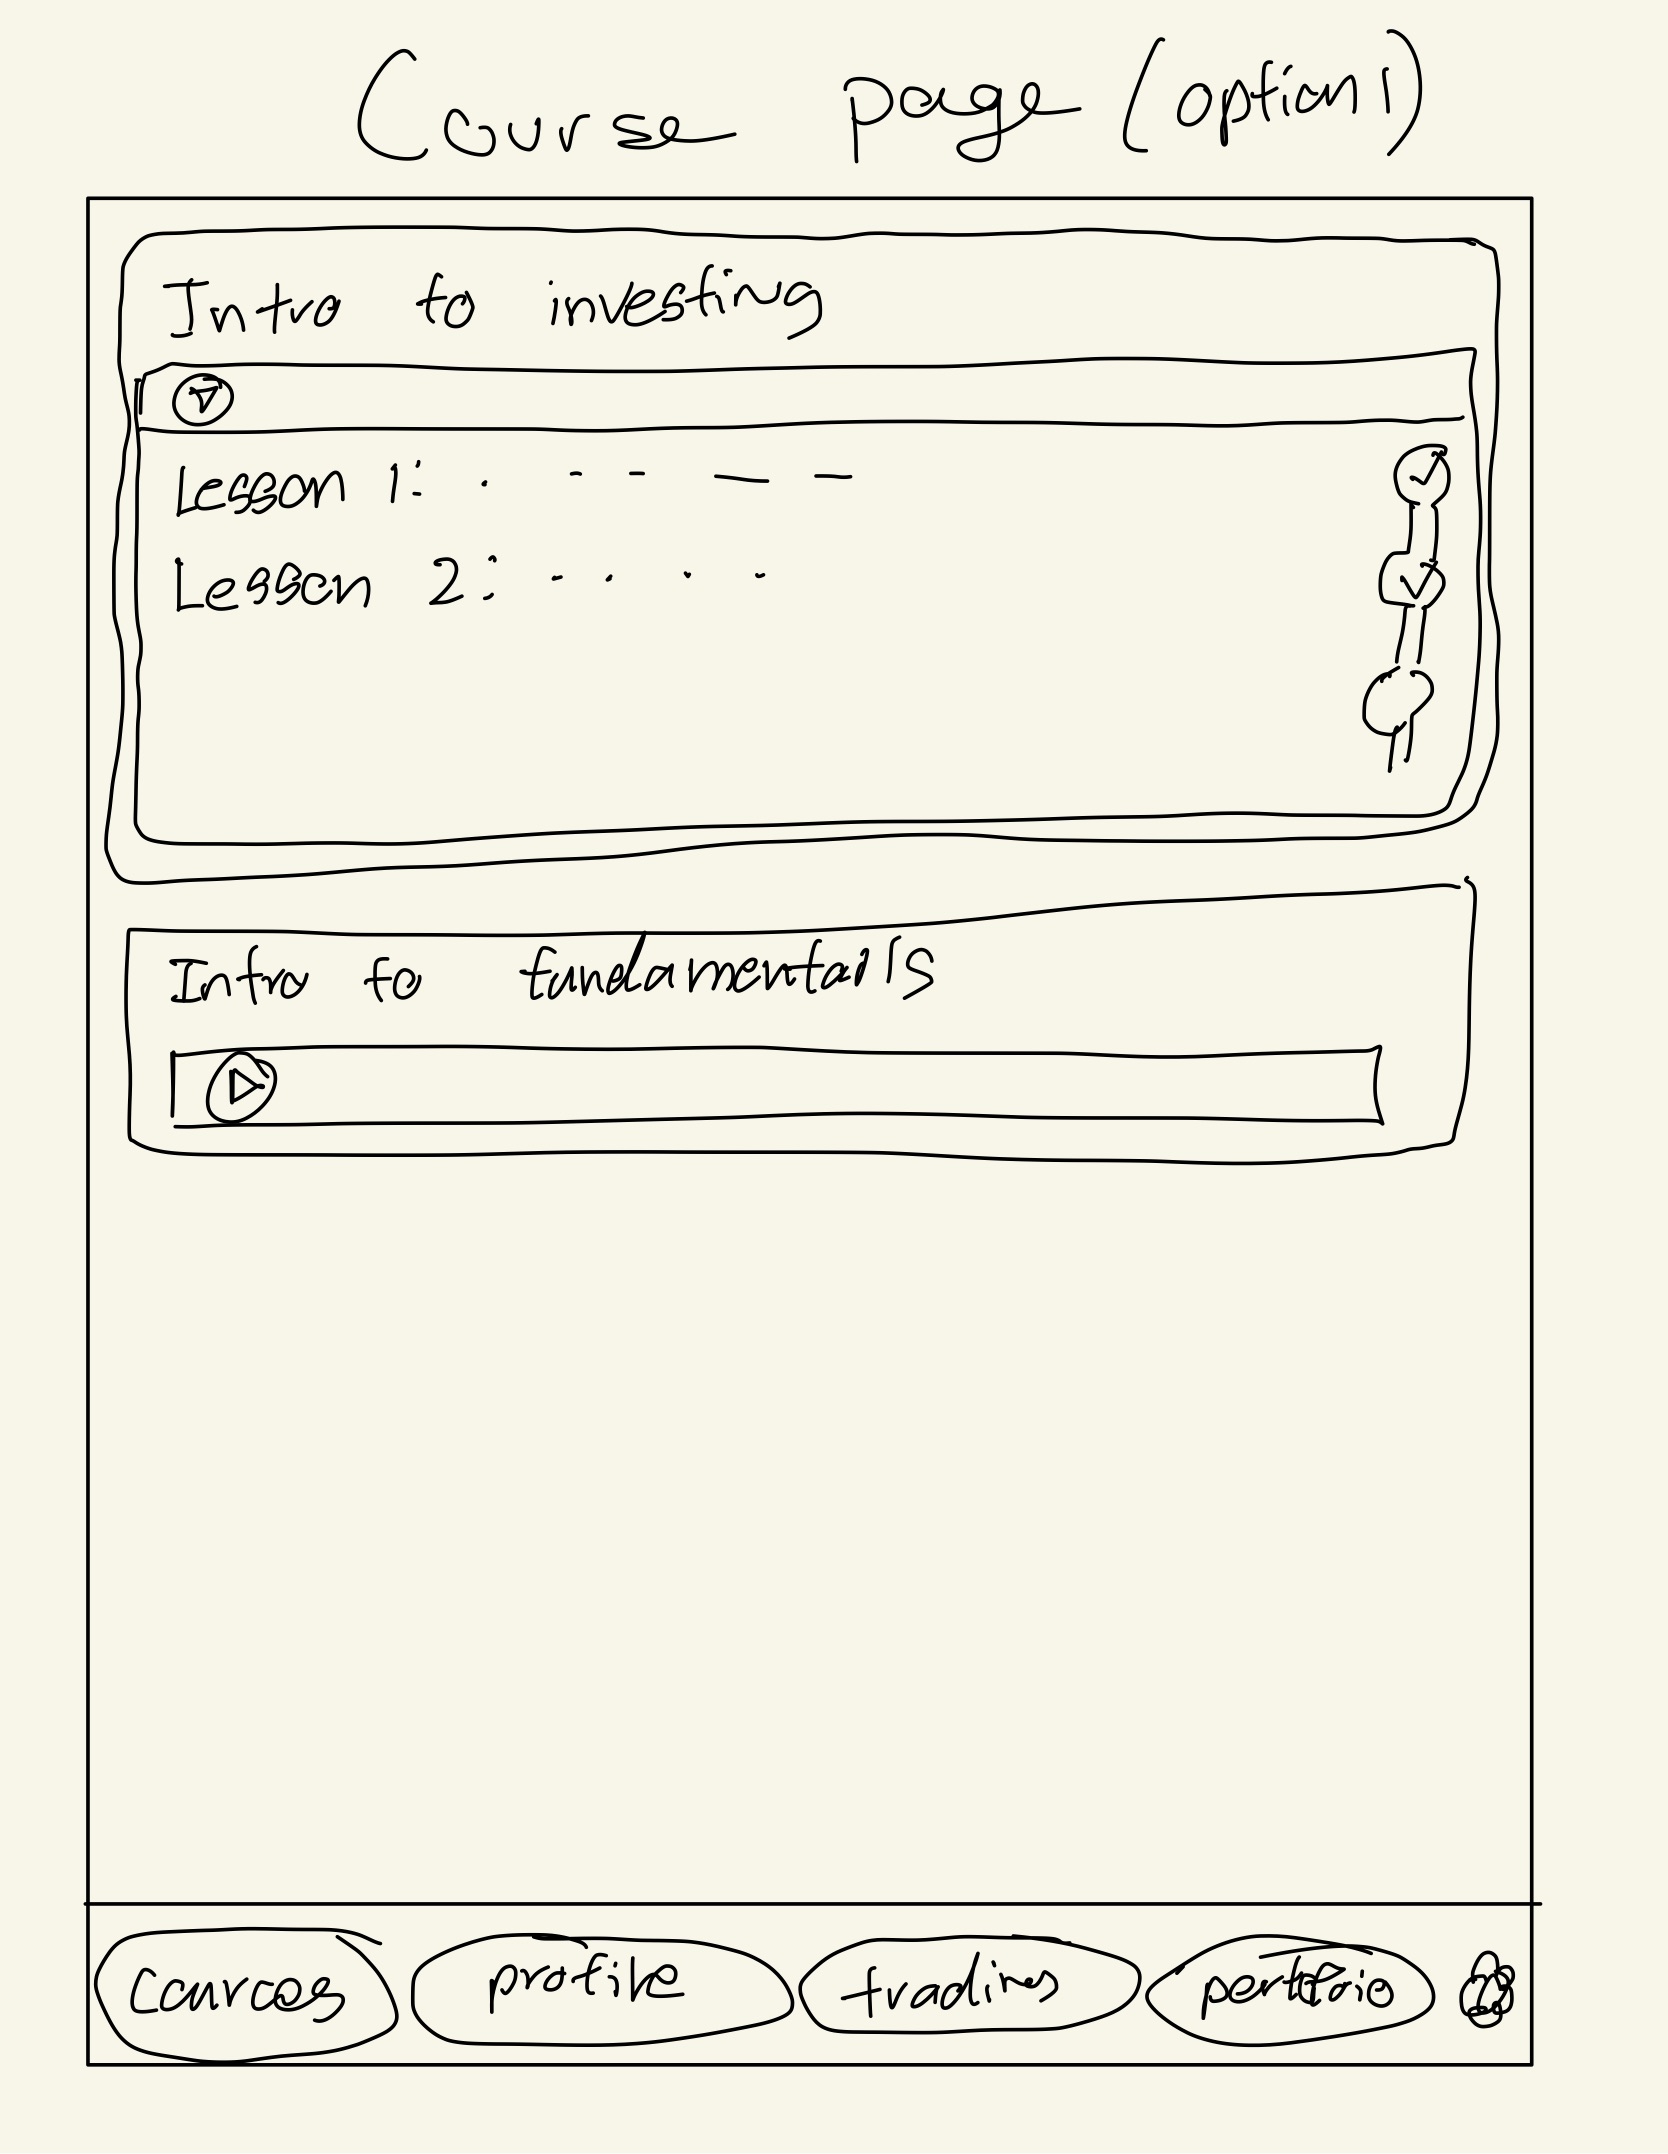 Course page (option 1)
Intro to investing
Lesson 1:
Lesson 2:
Intro to fundamentals
profile
trading